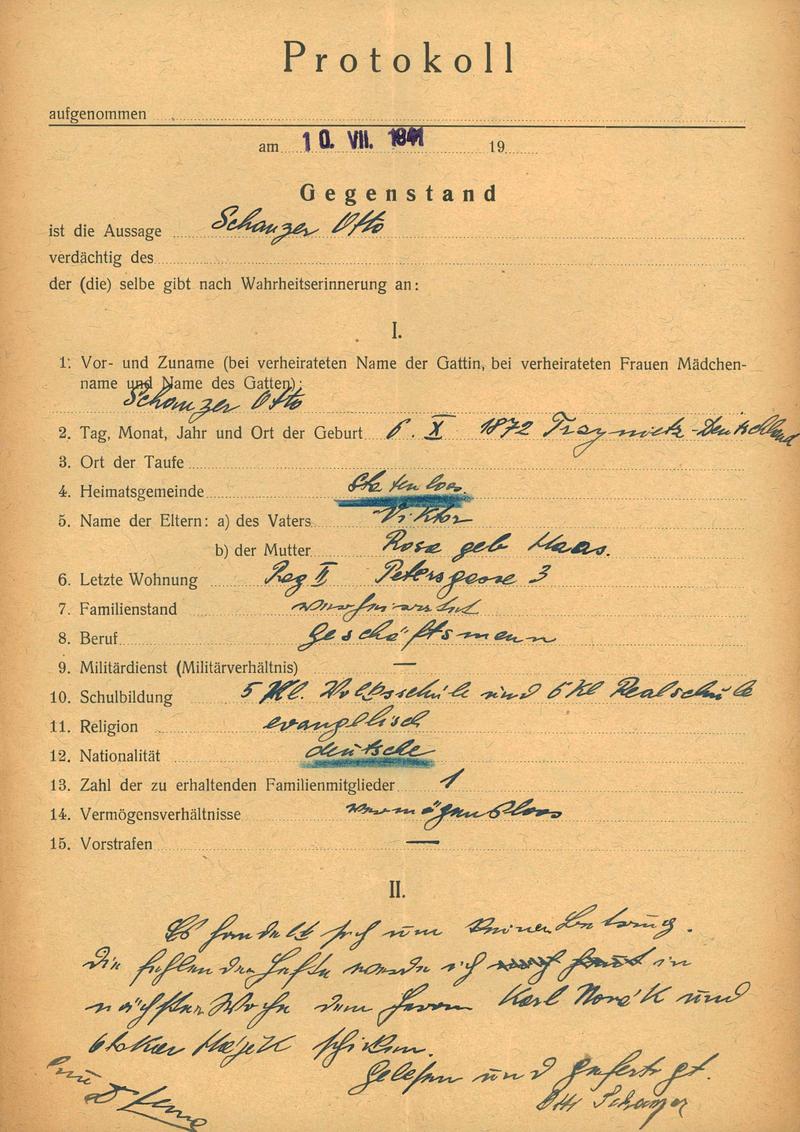 Protokoll
aufgenommen
am 10. VII. 1941 19
Gegenstand
ist die Aussage Schanzer Otto
verdächtig des
der (die) selbe gibt nach Wahrheitserinnerung an:
I.
1. Vor- und Zuname (bei verheirateten Name der Gattin, bei verheirateten Frauen Mädchen-
name und Name des Gatten):
Schanzer Otto
2. Tag, Monat, Jahr und Ort der Geburt 6. X 1872 Deutschland
3. Ort der Taufe
4. Heimatsgemeinde statenloos.
5. Name der Eltern: a) des Vaters Viktor
b) der Mutter Rosa geb Haas.
6. Letzte Wohnung Prag II Petersgasse 3
7. Familienstand verheiratet
8. Beruf Geschäftsmann
9. Militärdienst (Militärverhältnis) —
10. Schulbildung 5 Kl. Volksschule und 6 Kl Realschule
11. Religion evangelisch
12. Nationalität deutsche
13. Zahl der zu erhaltenden Familienmitglieder 1
14. Vermögensverhältnisse vermögensloos
15. Vorstrafen —
II.
Es handelt sich um keinen Betrug.
Die fehlenden Hefte werde ich in
nächster Woche dem Herrn Karl Novák und
Otokar Hájek schicken.
Gelesen und gefertigt.
Otto Schanzer